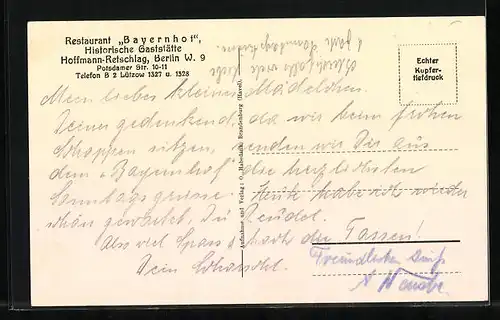 Restaurant „Bayernhof",
Historische Gaststätte
Hoffmann-Retschlag, Berlin W. 9
Potsdamer Str. 10-11
Telefon B 2 Lützow 1327 u. 1328
Echter
Kupfer-
tiefdruck
Mein liebes kleines Mädelchen.
Deiner gedenkend, da wir beim frohen
Schoppen sitzen, senden wir Dir aus
dem „Bayernhof" die herzlichsten
Sonntagsgrüsse. Heute habe ich wieder
schön gewartet, Du
Also viel Spass & hoch die Tassen!
Dein
Freundlichen Gruß
Aufnahme und Verlag: O. Haberlach, Brandenburg (Havel).